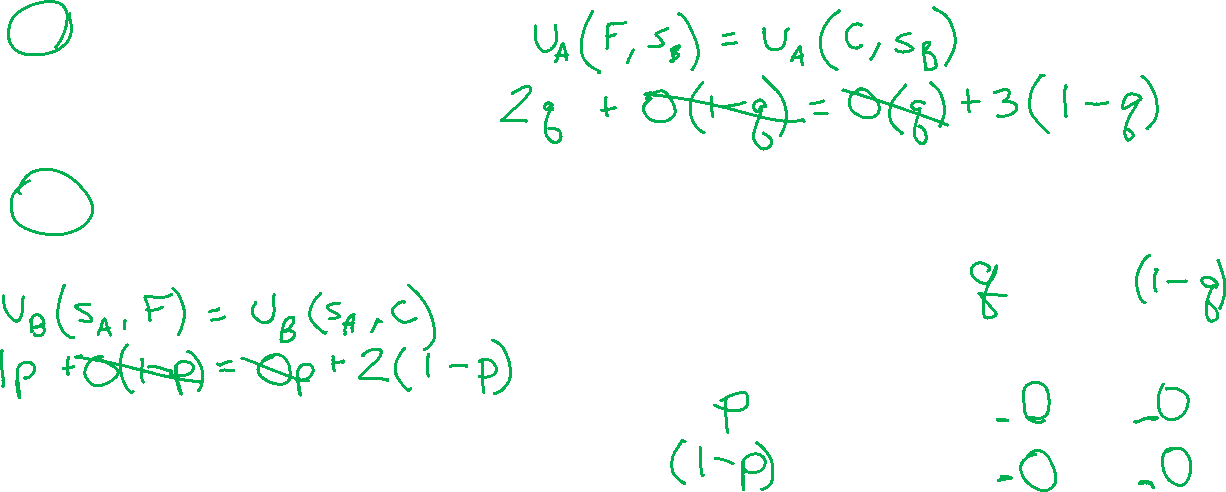 U_A(F, S_B) = U_A(C, S_B)
2q + 0(1-q) = 0(q) + 3(1-q)
U_B(S_A, F) = U_B(S_A, C)
1p + 0(1-p) = 0p + 2(1-p)
q (1-q)
p -0 -0
(1-p) -0 -0